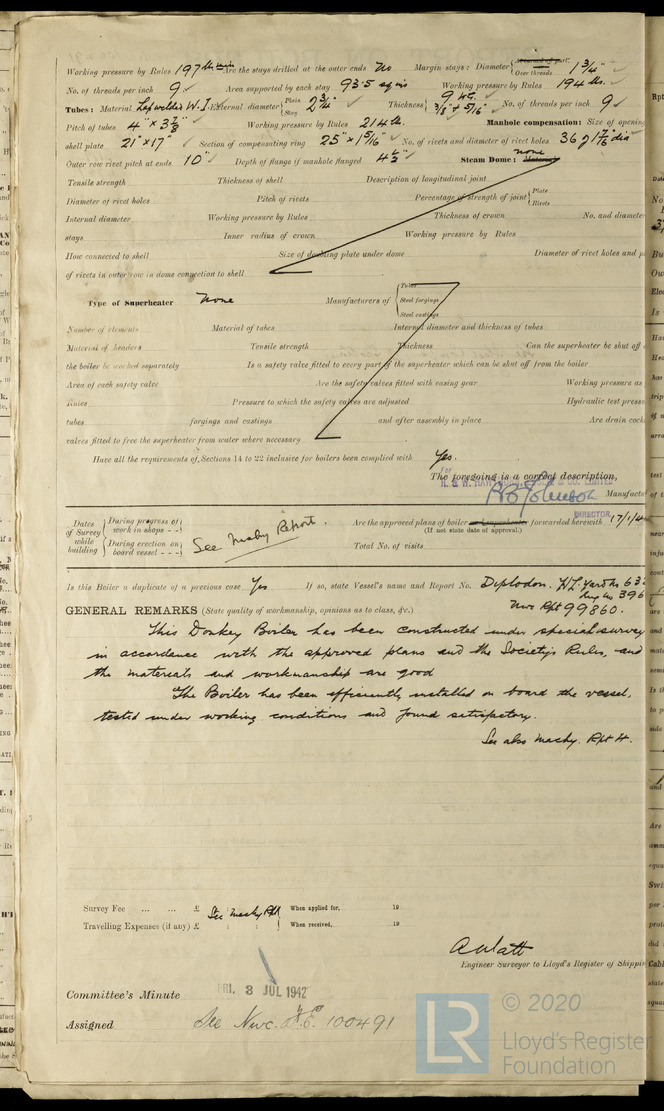 Working pressure by Rules 197 lbs Are the stays drilled at the outer ends No Margin stays: Diameter Over threads 1 3/4"
No. of threads per inch 9 Area supported by each stay 93.5 sq ins Working pressure by Rules 194 lbs.
Tubes: Material Lapwelded W.I. External diameter Plain Stay 2 3/4" Thickness 9 WG. 3/8" & 5/16" No. of threads per inch 9
Pitch of tubes 4" x 3 7/8" Working pressure by Rules 214 lb. Manhole compensation: Size of opening
shell plate 21" x 17" Section of compensating ring 25" x 1 5/16" No. of rivets and diameter of rivet holes 36 of 1 7/16" dia
Outer row rivet pitch at ends 10" Depth of flange if manhole flanged 4 1/2" Steam Dome: Material none
Tensile strength Thickness of shell Description of longitudinal joint
Diameter of rivet holes Pitch of rivets Percentage of strength of joint Plate Rivets
Internal diameter Working pressure by Rules Thickness of crown No. and diameter
stays Inner radius of crown Working pressure by Rules
How connected to shell Size of doubling plate under dome Diameter of rivet holes and p
of rivets in outer row in dome connection to shell
Type of Superheater None Manufacturers of Tubes Steel forgings Steel castings
Number of elements Material of tubes Internal diameter and thickness of tubes
Material of headers Tensile strength Thickness Can the superheater be shut off
the boiler be worked separately Is a safety valve fitted to every part of the superheater which can be shut off from the boiler
Area of each safety valve Are the safety valves fitted with easing gear Working pressure as
Rules Pressure to which the safety valves are adjusted Hydraulic test press
tubes forgings and castings and after assembly in place Are drain cock
valves fitted to free the superheater from water where necessary
Have all the requirements of Sections 14 to 22 inclusive for boilers been complied with Yes.
The foregoing is a correct description,
Manufact
DIRECTOR
Dates of Survey while building During progress of work in shops - - During erection on board vessel - - -
See Machy Report.
Are the approved plans of boiler forwarded herewith 17/1/4
(If not state date of approval.)
Total No. of visits
Is this Boiler a duplicate of a previous case Yes If so, state Vessel's name and Report No. Diplodon. HL. Yard No 63
Eng No 396
Nwc Rpt 99860.
GENERAL REMARKS (State quality of workmanship, opinions as to class, &c.)
This Donkey Boiler has been constructed under special survey
in accordance with the approved plans and the Society's Rules, and
the materials and workmanship are good
The Boiler has been efficiently installed on board the vessel,
tested under working conditions and found satisfactory.
See also Machy. Rpt 4.
Survey Fee ... ... £ See Machy Rpt When applied for, 19
Travelling Expenses (if any) £ : : When received, 19
A Watt
Engineer Surveyor to Lloyd's Register of Shippin
Committee's Minute FRI. 3 JUL 1942
Assigned See Nwc. F.E. 100491
LR © 2020
Lloyd's Register
Foundation